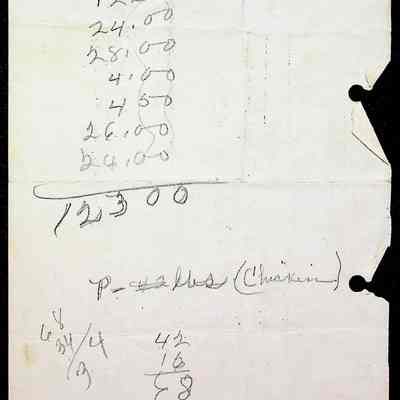 24.00
28.00
4.00
4 50
26.00
24.00
12300
P- lbs (Chicken)
68
34/4
3
42
16
58